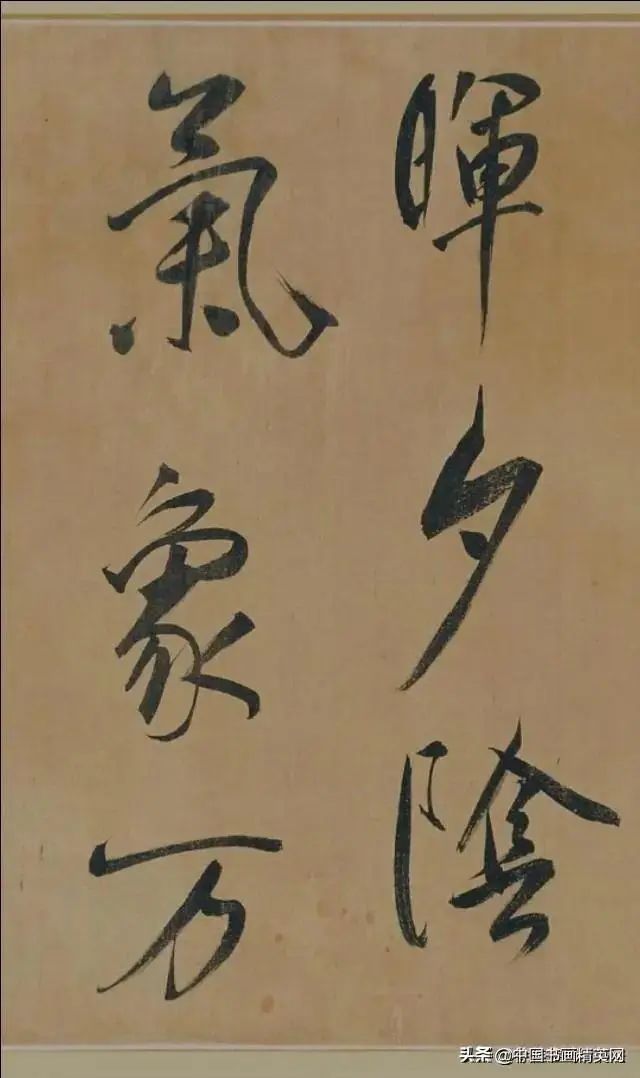 暉夕陰
氣象万
头条@中国书画精英网